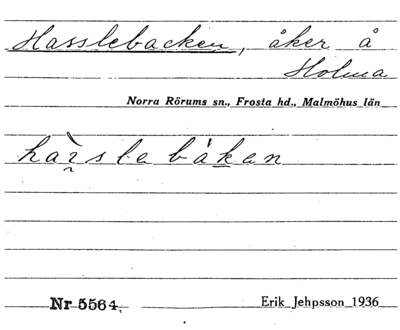 Hasslebacken, åker å
Holma
Norra Rörums sn., Frosta hd., Malmöhus län
Nr 5564.
Erik Jehpsson 1936